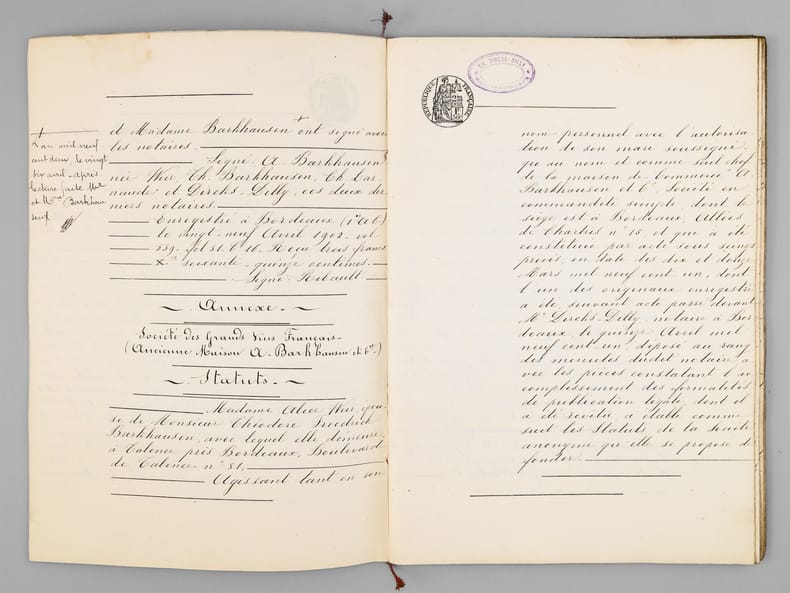 L'an mil neuf
cent deux, le vingt
six avril, après
lecture faite Mr
et Mme Barkhau
sen
et Madame Barkhausen + ont signé avec
les notaires.
Signé: A. Barkhausen
née Wer, Th. Barkhausen, Th. Car
naude: et Dirchs-Dilly, ces deux der
niers notaires.
Enregistré à Bordeaux (1er a.c.)
le vingt-neuf Avril 1902. vol.
539. fol 51. C 11. Reçu trois francs
Xes soixante-quinze centimes.
Signé: Ribault.
Annexe.
Société des Grands Vins Français.
(Ancienne Maison A. Barkhausen et Cie.)
Statuts.
Madame Alice Wer, épou
se de Monsieur Théodore Friedrich
Barkhausen, avec lequel elle demeure,
à Talence près Bordeaux, Boulevard
de Talence n° 81,
Agissant tant en son
RÉPUBLIQUE FRANÇAISE
DIRCKS-DILLY
nom personnel avec l'autorisa
tion de son mari soussigné,
qu'au nom et comme seul chef
de la maison de Commerce A.
Barkhausen et Cie, Société en
commandite simple dont le
siège est à Bordeaux, Allées
de Chartres n° 15, et qui a été
constituée par acte sous seings
privés, en date des dix et douze
Mars mil neuf cent un, dont
l'un des originaux enregistré
a été, suivant acte passé devant
Me Dircks-Dilly, notaire à Bor
deaux, le quinze Avril mil
neuf cent un, déposé au rang
des minutes dudit notaire a
vec les pièces constatant l'ac
complissement des formalités
de publication légale, dont il
a été revêtu, a établi comme
suit les Statuts de la Société
anonyme qu'elle se propose de
fonder.